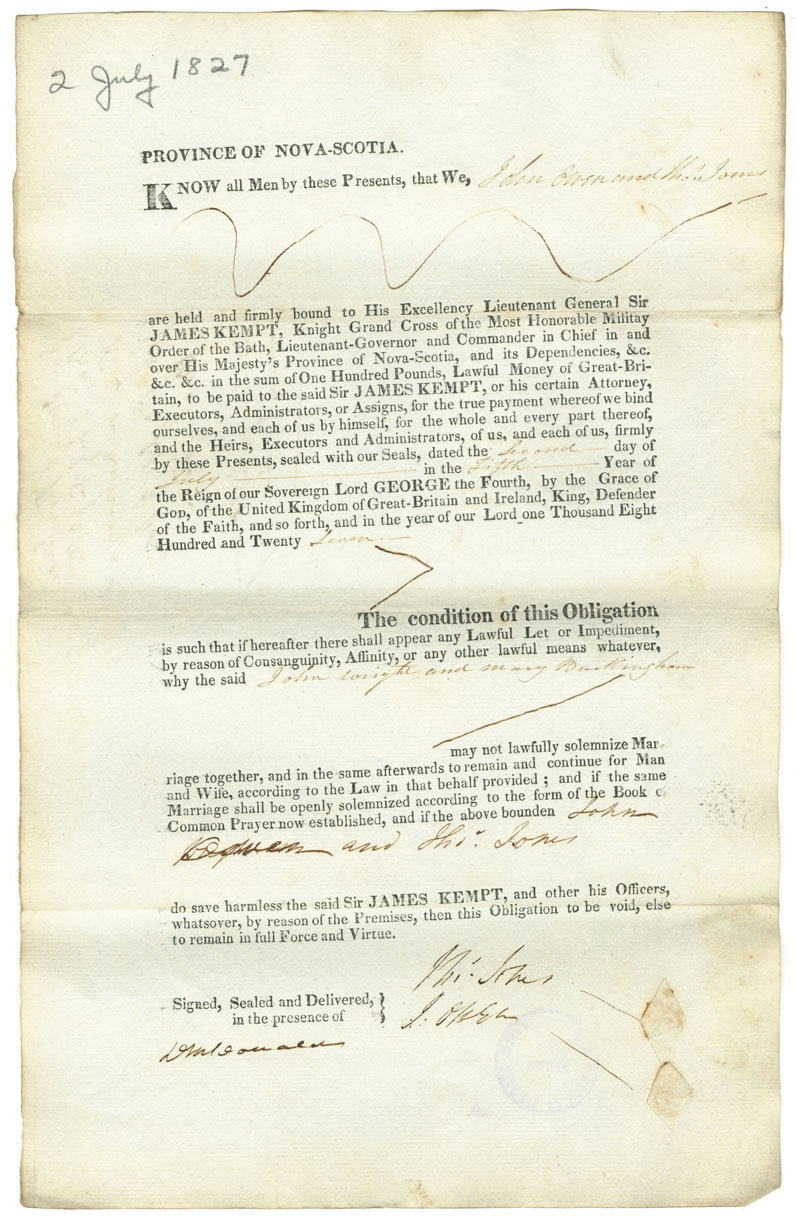 2 July 1827
PROVINCE OF NOVA-SCOTIA.
KNOW all Men by these Presents, that We, John Owen and Thos. Jones
are held and firmly bound to His Excellency Lieutenant General Sir
JAMES KEMPT, Knight Grand Cross of the Most Honorable Militay
Order of the Bath, Lieutenant-Governor and Commander in Chief in and
over His Majesty's Province of Nova-Scotia, and its Dependencies, &c.
&c. &c. in the sum of One Hundred Pounds, Lawful Money of Great-Bri-
tain, to be paid to the said Sir JAMES KEMPT, or his certain Attorney,
Executors, Administrators, or Assigns, for the true payment whereof we bind
ourselves, and each of us by himself, for the whole and every part thereof,
and the Heirs, Executors and Administrators, of us, and each of us, firmly
by these Presents, sealed with our Seals, dated the Second day of
July in the Fifth Year of
the Reign of our Sovereign Lord GEORGE the Fourth, by the Grace of
GOD, of the United Kingdom of Great-Britain and Ireland, King, Defender
of the Faith, and so forth, and in the year of our Lord one Thousand Eight
Hundred and Twenty Seven.
The condition of this Obligation
is such that if hereafter there shall appear any Lawful Let or Impediment,
by reason of Consanguinity, Affinity, or any other lawful means whatever,
why the said John Wright and Mary Buckingham
may not lawfully solemnize Mar-
riage together, and in the same afterwards to remain and continue for Man
and Wife, according to the Law in that behalf provided ; and if the same
Marriage shall be openly solemnized according to the form of the Book o
Common Prayer now established, and if the above bounden John
and Thos. Jones
do save harmless the said Sir JAMES KEMPT, and other his Officers,
whatsover, by reason of the Premises, then this Obligation to be void, else
to remain in full Force and Virtue.
Thos. Jones
Signed, Sealed and Delivered,
in the presence of J. Owen
D McDonald